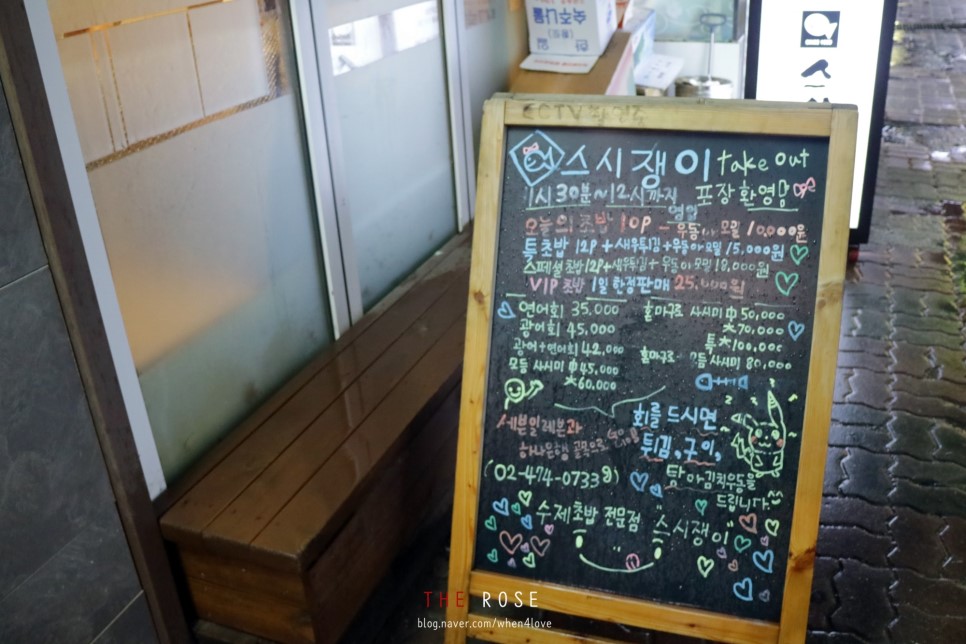 숙주나물
CCTV
스시쟁이 take out
1시 30분~12시까지 포장 환영
오늘의 초밥 10P - 우동 or 모밀 10,000원
특초밥 12P + 새우튀김 + 우동 or 모밀 15,000원
스페셜초밥 12P + 새우튀김 + 우동 or 모밀 18,000원
VIP 초밥 1일 한정판매 25,000원
연어회 35,000 혼마구로 사시미 中 50,000
광어회 45,000 大 70,000
광어+연어회 42,000 특大 100,000
모듬 사시미 中 45,000 모듬 사시미 80,000
大 60,000
회를 드시면
세븐일레븐과
튀김, 구이,
하나은행 골목으로
(02-474-0733)
드립니다.^^
수제초밥 전문점 "스시쟁이"
THE ROSE
blog.naver.com/when4love